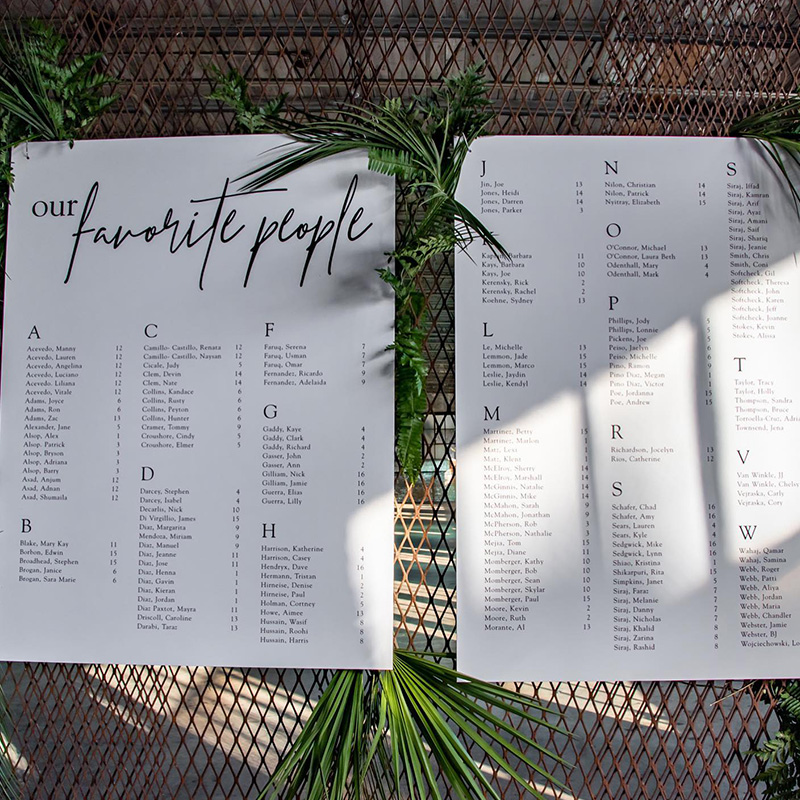 our favorite people
A
Acevedo, Manny 12
Acevedo, Lauren 12
Acevedo, Angelina 12
Acevedo, Luciano 12
Acevedo, Liliana 12
Acevedo, Vitale 12
Adams, Joyce 6
Adams, Ron 6
Adams, Zac 13
Alexander, Jane 5
Alsop, Alex 1
Alsop, Patrick 3
Alsop, Bryson 3
Alsop, Adriana 3
Alsop, Barry 3
Asad, Anjum 12
Asad, Adnan 12
Asad, Shumaila 12
B
Blake, Mary Kay 11
Borbon, Edwin 15
Broadhead, Stephen 15
Brogan, Janice 6
Brogan, Sara Marie 6
C
Camillo- Castillo, Renata 12
Camillo- Castillo, Naysan 12
Cicale, Judy 5
Clem, Devin 14
Clem, Nate 14
Collins, Kandace 6
Collins, Rusty 6
Collins, Peyton 6
Collins, Hunter 6
Cramer, Tommy 9
Croushore, Cindy 5
Croushore, Elmer 5
D
Darcey, Stephen 4
Darcey, Isabel 4
Decarlis, Nick 10
Di Virgillio, James 15
Diaz, Margarita 9
Mendoza, Miriam 9
Diaz, Manuel 9
Diaz, Jeanne 11
Diaz, Jose 11
Diaz, Henna 1
Diaz, Gavin 1
Diaz, Kieran 1
Diaz, Jordan 1
Diaz Paxtot, Mayra 11
Driscoll, Caroline 13
Darabi, Taraz 13
F
Faruq, Serena 7
Faruq, Usman 7
Faruq, Omar 7
Fernander, Ricardo 9
Fernander, Adelaida 9
G
Gaddy, Kaye 4
Gaddy, Clark 4
Gaddy, Richard 4
Gasser, John 2
Gasser, Ann 2
Gilliam, Nick 16
Gilliam, Jamie 16
Guerra, Elias 16
Guerra, Lilly 16
H
Harrison, Katherine 4
Harrison, Casey 4
Hendryx, Dave 16
Hermann, Tristan 1
Hirneise, Denise 2
Hirneise, Paul 2
Holman, Cortney 5
Howe, Aimee 13
Hussain, Wasif 8
Hussain, Roohi 8
Hussain, Harris 8
J
Jin, Joe 13
Jones, Heidi 14
Jones, Darren 14
Jones, Parker 3
Barbara 11
Kays, Barbara 10
Kays, Joe 10
Kerensky, Rick 2
Kerensky, Rachel 2
Koehne, Sydney 13
L
Le, Michelle 13
Lemmon, Jade 15
Lemmon, Marco 15
Leslie, Jaydin 14
Leslie, Kendyl 14
M
Martinez, Betty 15
Martinez, Marlon 1
Matz, Lexi 1
Matz, Klent 1
McElroy, Sherry 14
McElroy, Marshall 14
McGinnis, Natalie 14
McGinnis, Mike 14
McMahon, Sarah 9
McMahon, Jonathan 9
McPherson, Rob 3
McPherson, Nathalie 3
Mejia, Tom 15
Mejia, Diane 11
Momberger, Kathy 10
Momberger, Bob 10
Momberger, Sean 10
Momberger, Skylar 10
Momberger, Paul 15
Moore, Kevin 2
Moore, Ruth 2
Morante, Al 13
N
Nilon, Christian 14
Nilon, Patrick 14
Nyitray, Elizabeth 15
O
O'Connor, Michael 13
O'Connor, Laura Beth 13
Odenthall, Mary 4
Odenthall, Mark 4
P
Phillips, Jody 5
Phillips, Lonnie 5
Pickens, Joe
Peiso, Jaelyn 6
Peiso, Michelle 6
Pino, Ramon 9
Pino Diaz, Megan 1
Pino Diaz, Victor 1
Poe, Jordanna 15
Poe, Andrew 15
R
Richardson, Jocelyn 13
Rios, Catherine 12
S
Schafer, Chad 16
Schafer, Amy 16
Sears, Lauren 4
Sears, Kyle 4
Sedgwick, Mike 16
Sedgwick, Lynn 16
Shiao, Kristina 1
Shikarpuri, Rita 15
Simpkins, Janet 5
Siraj, Faraz 7
Siraj, Melanie 7
Siraj, Danny 7
Siraj, Nicholas 7
Siraj, Khalid 8
Siraj, Zarina 8
Siraj, Rashid 8
S
Siraj, Iffad
Siraj, Kamran
Siraj, Arif
Siraj, Ayaz
Siraj, Amani
Siraj, Saif
Siraj, Shariq
Siraj, Jeanie
Smith, Chris
Smith, Coni
Softcheck, Gil
Softcheck, Theresa
Softcheck, John
Softcheck, Karen
Softcheck, Jeff
Softcheck, Joanne
Stokes, Kevin
Stokes, Alissa
T
Taylor, Tracy
Taylor, Holly
Thompson, Sandra
Thompson, Bruce
Torruella-Cruz, Adria
Townsend, Jena
V
Van Winkle, JJ
Van Winkle, Chelse
Vejraska, Carly
Vejraska, Cory
W
Wahaj, Qamar
Wahaj, Samina
Webb, Roger
Webb, Patti
Webb, Aliya
Webb, Jordan
Webb, Maria
Webb, Chandler
Webster, Jamie
Webster, BJ
Wojciechowski, Lo